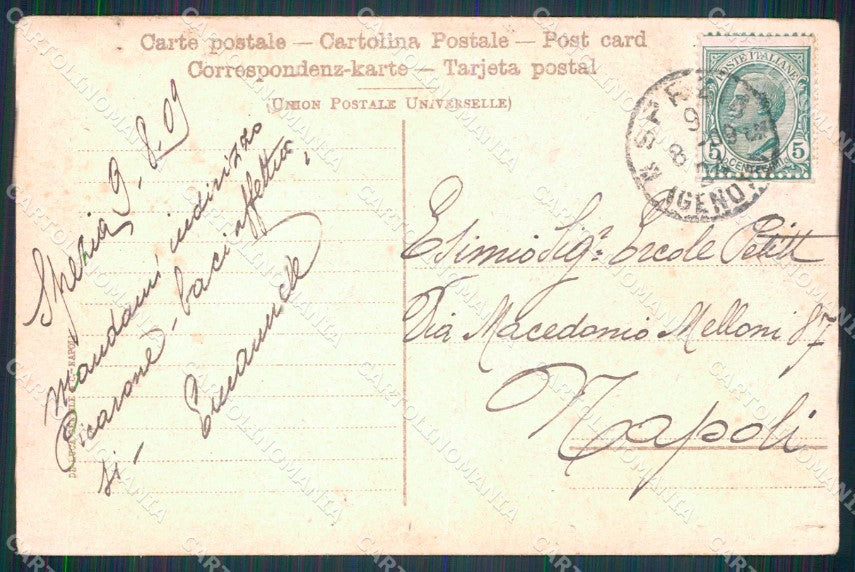 Carte postale — Cartolina Postale — Post card
Correspondenz-karte — Tarjeta postal
(Union Postale Universelle)
POSTE ITALIANE
5 CENTESIMI 5
SPEZIA
(GENOVA)
Spezia, 9-8-09
Mandami indirizzo
Picarone - baci affettuo
si - Emanuele
Esimio Sigr. Ercole Petitt
Via Macedonio Melloni 87
Napoli
CARTOLINOMANIA